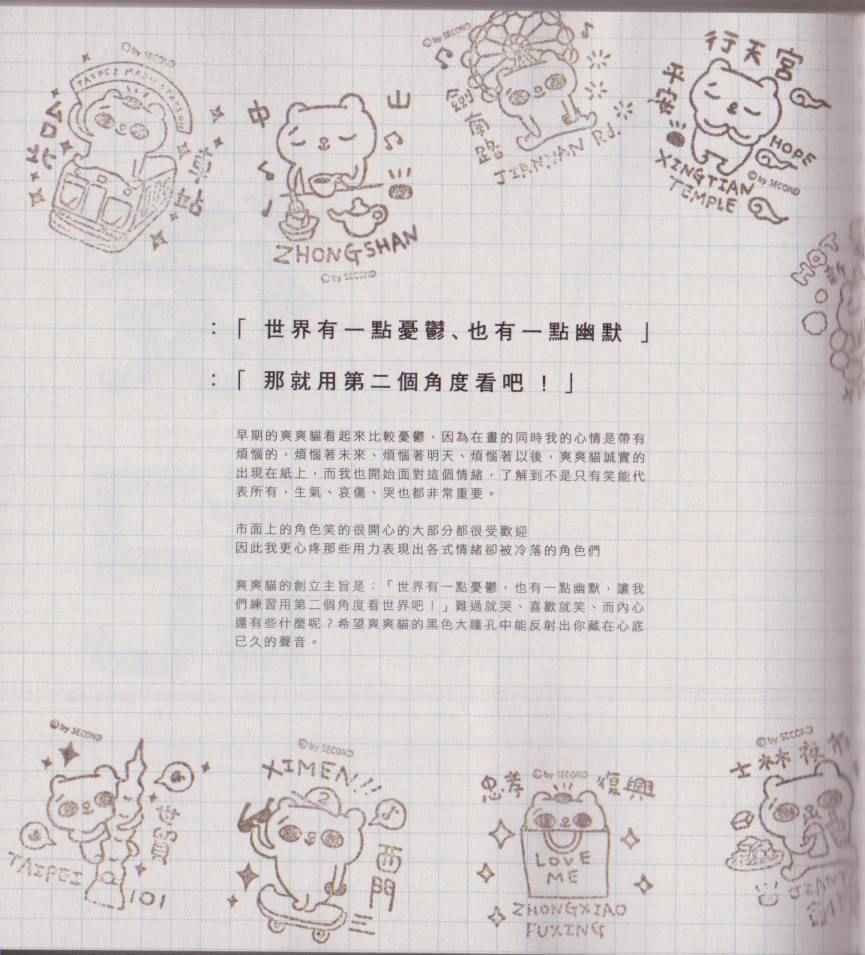 ©by SECOND
TAIPEI MAIN STATION
©by SECOND
劍南路
JIANNAN Rd.
行天宮
平安
HOPE
XINGTIAN
TEMPLE
©by SECOND
中山
ZHONGSHAN
©by SECOND
HOT
：「 世界有一點憂鬱、也有一點幽默 」
：「 那就用第二個角度看吧 ! 」
早期的爽爽貓看起來比較憂鬱，因為在畫的同時我的心情是帶有
煩惱的，煩惱著未來、煩惱著明天、煩惱著以後，爽爽貓誠實的
出現在紙上，而我也開始面對這個情緒，了解到不是只有笑能代
表所有，生氣、哀傷、哭也都非常重要。
市面上的角色笑的很開心的大部分都很受歡迎
因此我更心疼那些用力表現出各式情緒卻被冷落的角色們
爽爽貓的創立主旨是：「世界有一點憂鬱，也有一點幽默，讓我
們練習用第二個角度看世界吧！」難過就哭、喜歡就笑、而內心
還有些什麼呢？希望爽爽貓的黑色大瞳孔中能反射出你藏在心底
已久的聲音。
©by SECOND
TAIPEI
101
©by SECOND
XIMEN!!
2
西門
©by SECOND
忠孝 復興
LOVE
ME
ZHONGXIAO
FUXING
©by SECOND
士林